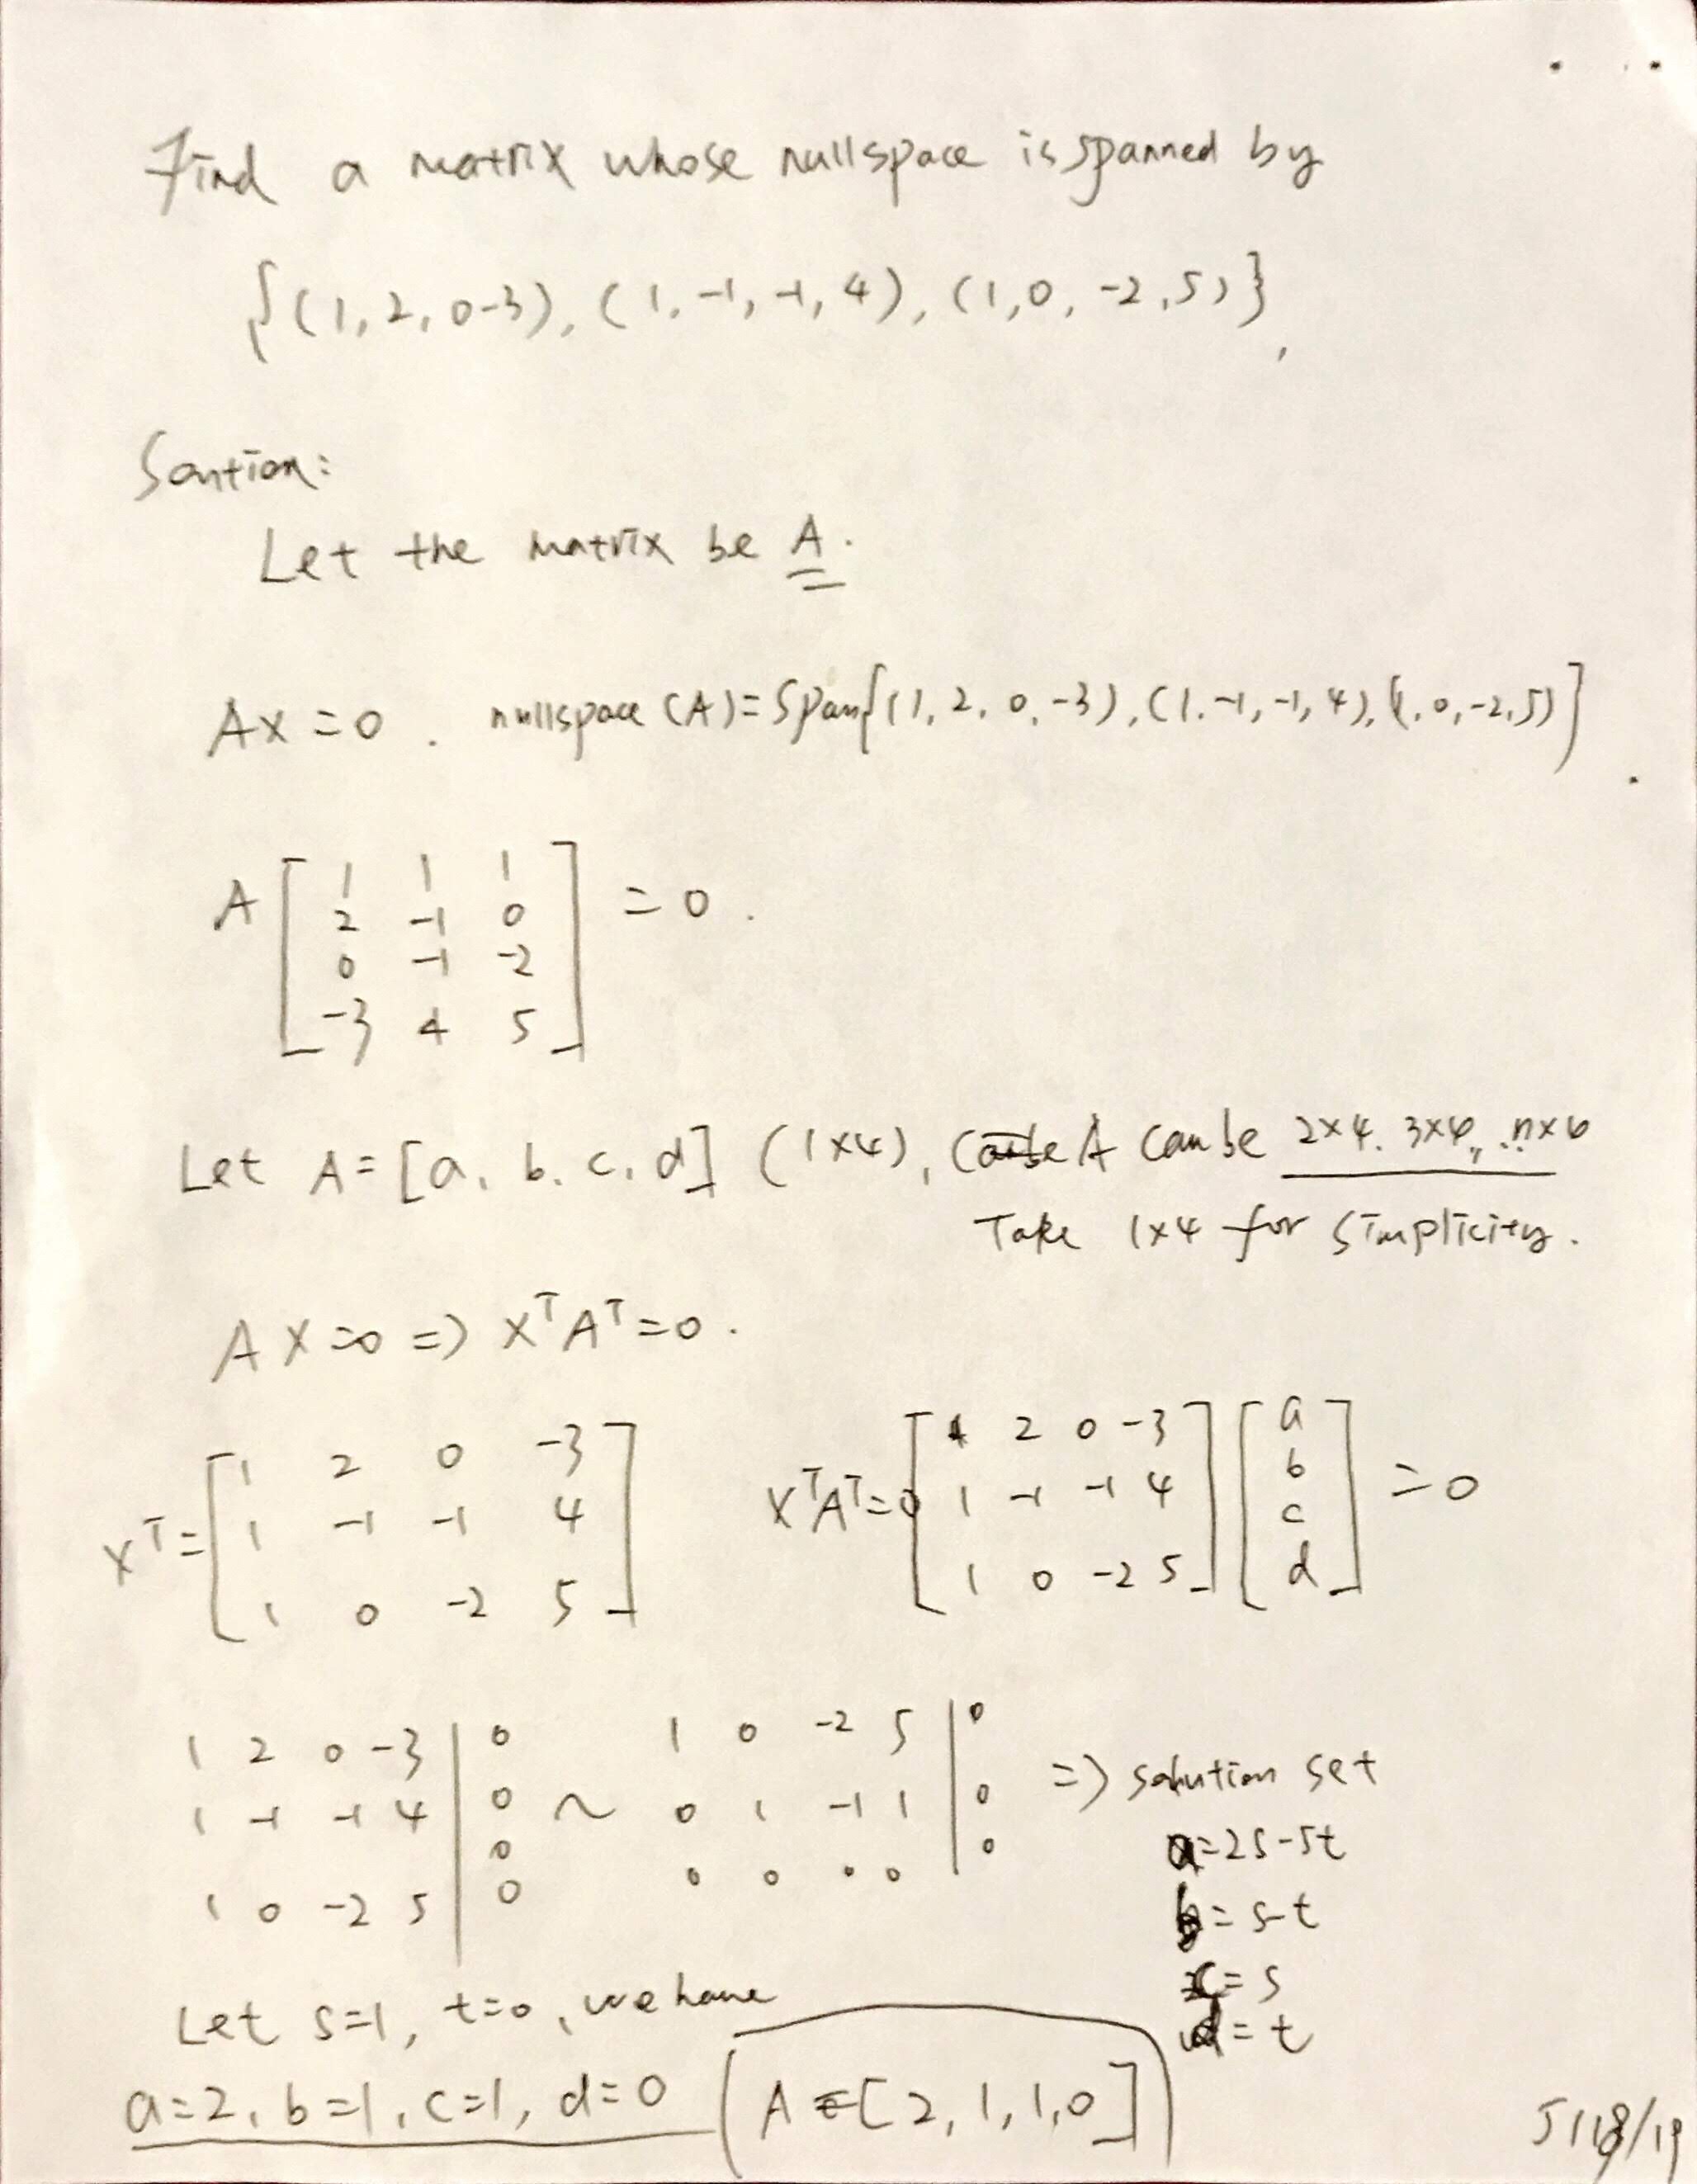 Find a matrix whose nullspace is spanned by
{(1, 2, 0-3), (1, -1, -1, 4), (1, 0, -2, 5)},
Soution:
Let the matrix be A.
Ax = 0. nullspace (A) = Span{(1, 2, 0, -3), (1, -1, -1, 4), (1, 0, -2, 5)}.
A [ 1 1 1
2 -1 0
0 -1 -2
-3 4 5 ] = 0.
Let A = [a, b, c, d] (1x4), A can be 2x4, 3x4, ... nx4
Take 1x4 for simplicity.
AX=0 => X^T A^T = 0.
X^T = [ 1 2 0 -3
1 -1 -1 4
1 0 -2 5 ]
X^T A^T = 0 [ 1 2 0 -3
1 -1 -1 4
1 0 -2 5 ] [ a
b
c
d ] = 0
1 2 0 -3 | 0
1 -1 -1 4 | 0
0
1 0 -2 5 | 0
~
1 0 -2 5 | 0
0 1 -1 1 | 0
0 0 0 0 | 0
=> solution set
a = 2s-5t
b = s-t
c = s
d = t
Let s=1, t=0, we have
a=2, b=1, c=1, d=0 (A = [2, 1, 1, 0]
5/18/19